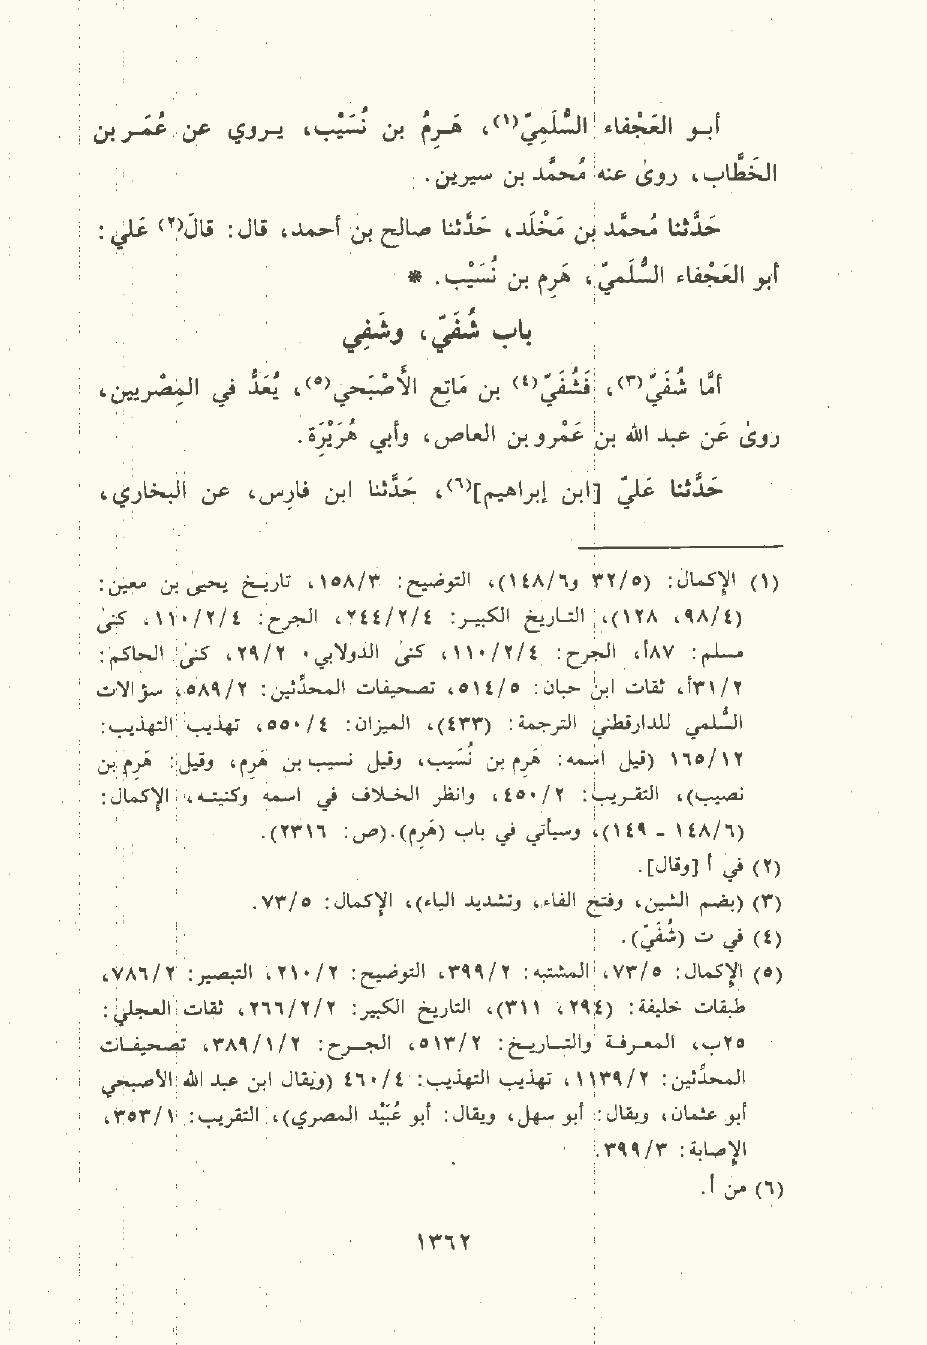 أبو العَجْفاء السُّلَمِيّ(١)، هَرِمُ بن نُسَيْب، يروي عن عُمَر بن
الخَطَّاب، روىٰ عنه مُحمَّد بن سيرين.
حَدَّثنا مُحمَّد بن مَخْلَد، حَدَّثنا صالح بن أحمد، قال: قالَ(٢) عَلي:
أبو العَجْفاء السُّلَميّ، هَرِم بن نُسَيْب. *
باب شُفَيّ، وشَفِي
أمَّا شُفَيّ(٣)، فَشُفَيّ(٤) بن مَاتِع الأَصْبَحي(٥)، يُعَدُّ في المِصْريين،
روىٰ عَن عبد الله بن عَمْرو بن العاص، وأبي هُرَيْرَة.
حَدَّثنا عَليّ [ابن إبراهيم](٦)، حَدَّثنا ابن فارِس، عن البخاري،
(١) الإكمال: (٣٢/٥ و١٤٨/٦)، التوضيح: ١٥٨/٣، تاريخ يحيىٰ بن معين:
(٩٨/٤، ١٢٨)، التاريخ الكبير: ٢٤٤/٢/٤، الجرح: ١١٠/٢/٤، كنىٰ
مسلم: ٨٧أ، الجرح: ١١٠/٢/٤، كنىٰ الدولابي، ٢٩/٢، كنىٰ الحاكم:
٣١/٢أ، ثقات ابن حبان: ٥١٤/٥، تصحيفات المحدِّثين: ٥٨٩/٢، سؤالات
السُّلمي للدارقطني الترجمة: (٤٣٣)، الميزان: ٥٥٠/٤، تهذيب التهذيب:
١٦٥/١٢ (قيل اسمه: هَرِم بن نُسَيب، وقيل نسيب بن هَرِم، وقيل: هَرِم بن
نصيب)، التقريب: ٤٥٠/٢، وانظر الخلاف في اسمه وكنيته، الإكمال:
(١٤٨/٦ - ١٤٩)، وسيأتي في باب (هَرِم).(ص: ٢٣١٦).
(٢) في أ [وقال].
(٣) (بضم الشين، وفتح الفاء، وتشديد الياء)، الإكمال: ٧٣/٥.
(٤) في ت (شُفَيّ).
(٥) الإكمال: ٧٣/٥، المشتبه: ٣٩٩/٢، التوضيح: ٢١٠/٢، التبصير: ٧٨٦/٢،
طبقات خليفة: (٢٩٤، ٣١١)، التاريخ الكبير: ٢٦٦/٢/٢، ثقات العجلي:
٢٥ب، المعرفة والتاريخ: ٥١٣/٢، الجرح: ٣٨٩/١/٢، تصحيفات
المحدِّثين: ١١٣٩/٢، تهذيب التهذيب: ٤٦٠/٤ (ويقال ابن عبد الله الأصبحي
أبو عثمان، ويقال: أبو سهل، ويقال: أبو عُبَيد المصري)، التقريب: ٣٥٣/١،
الإصابة: ٣٩٩/٣.
(٦) من أ.
١٣٦٢